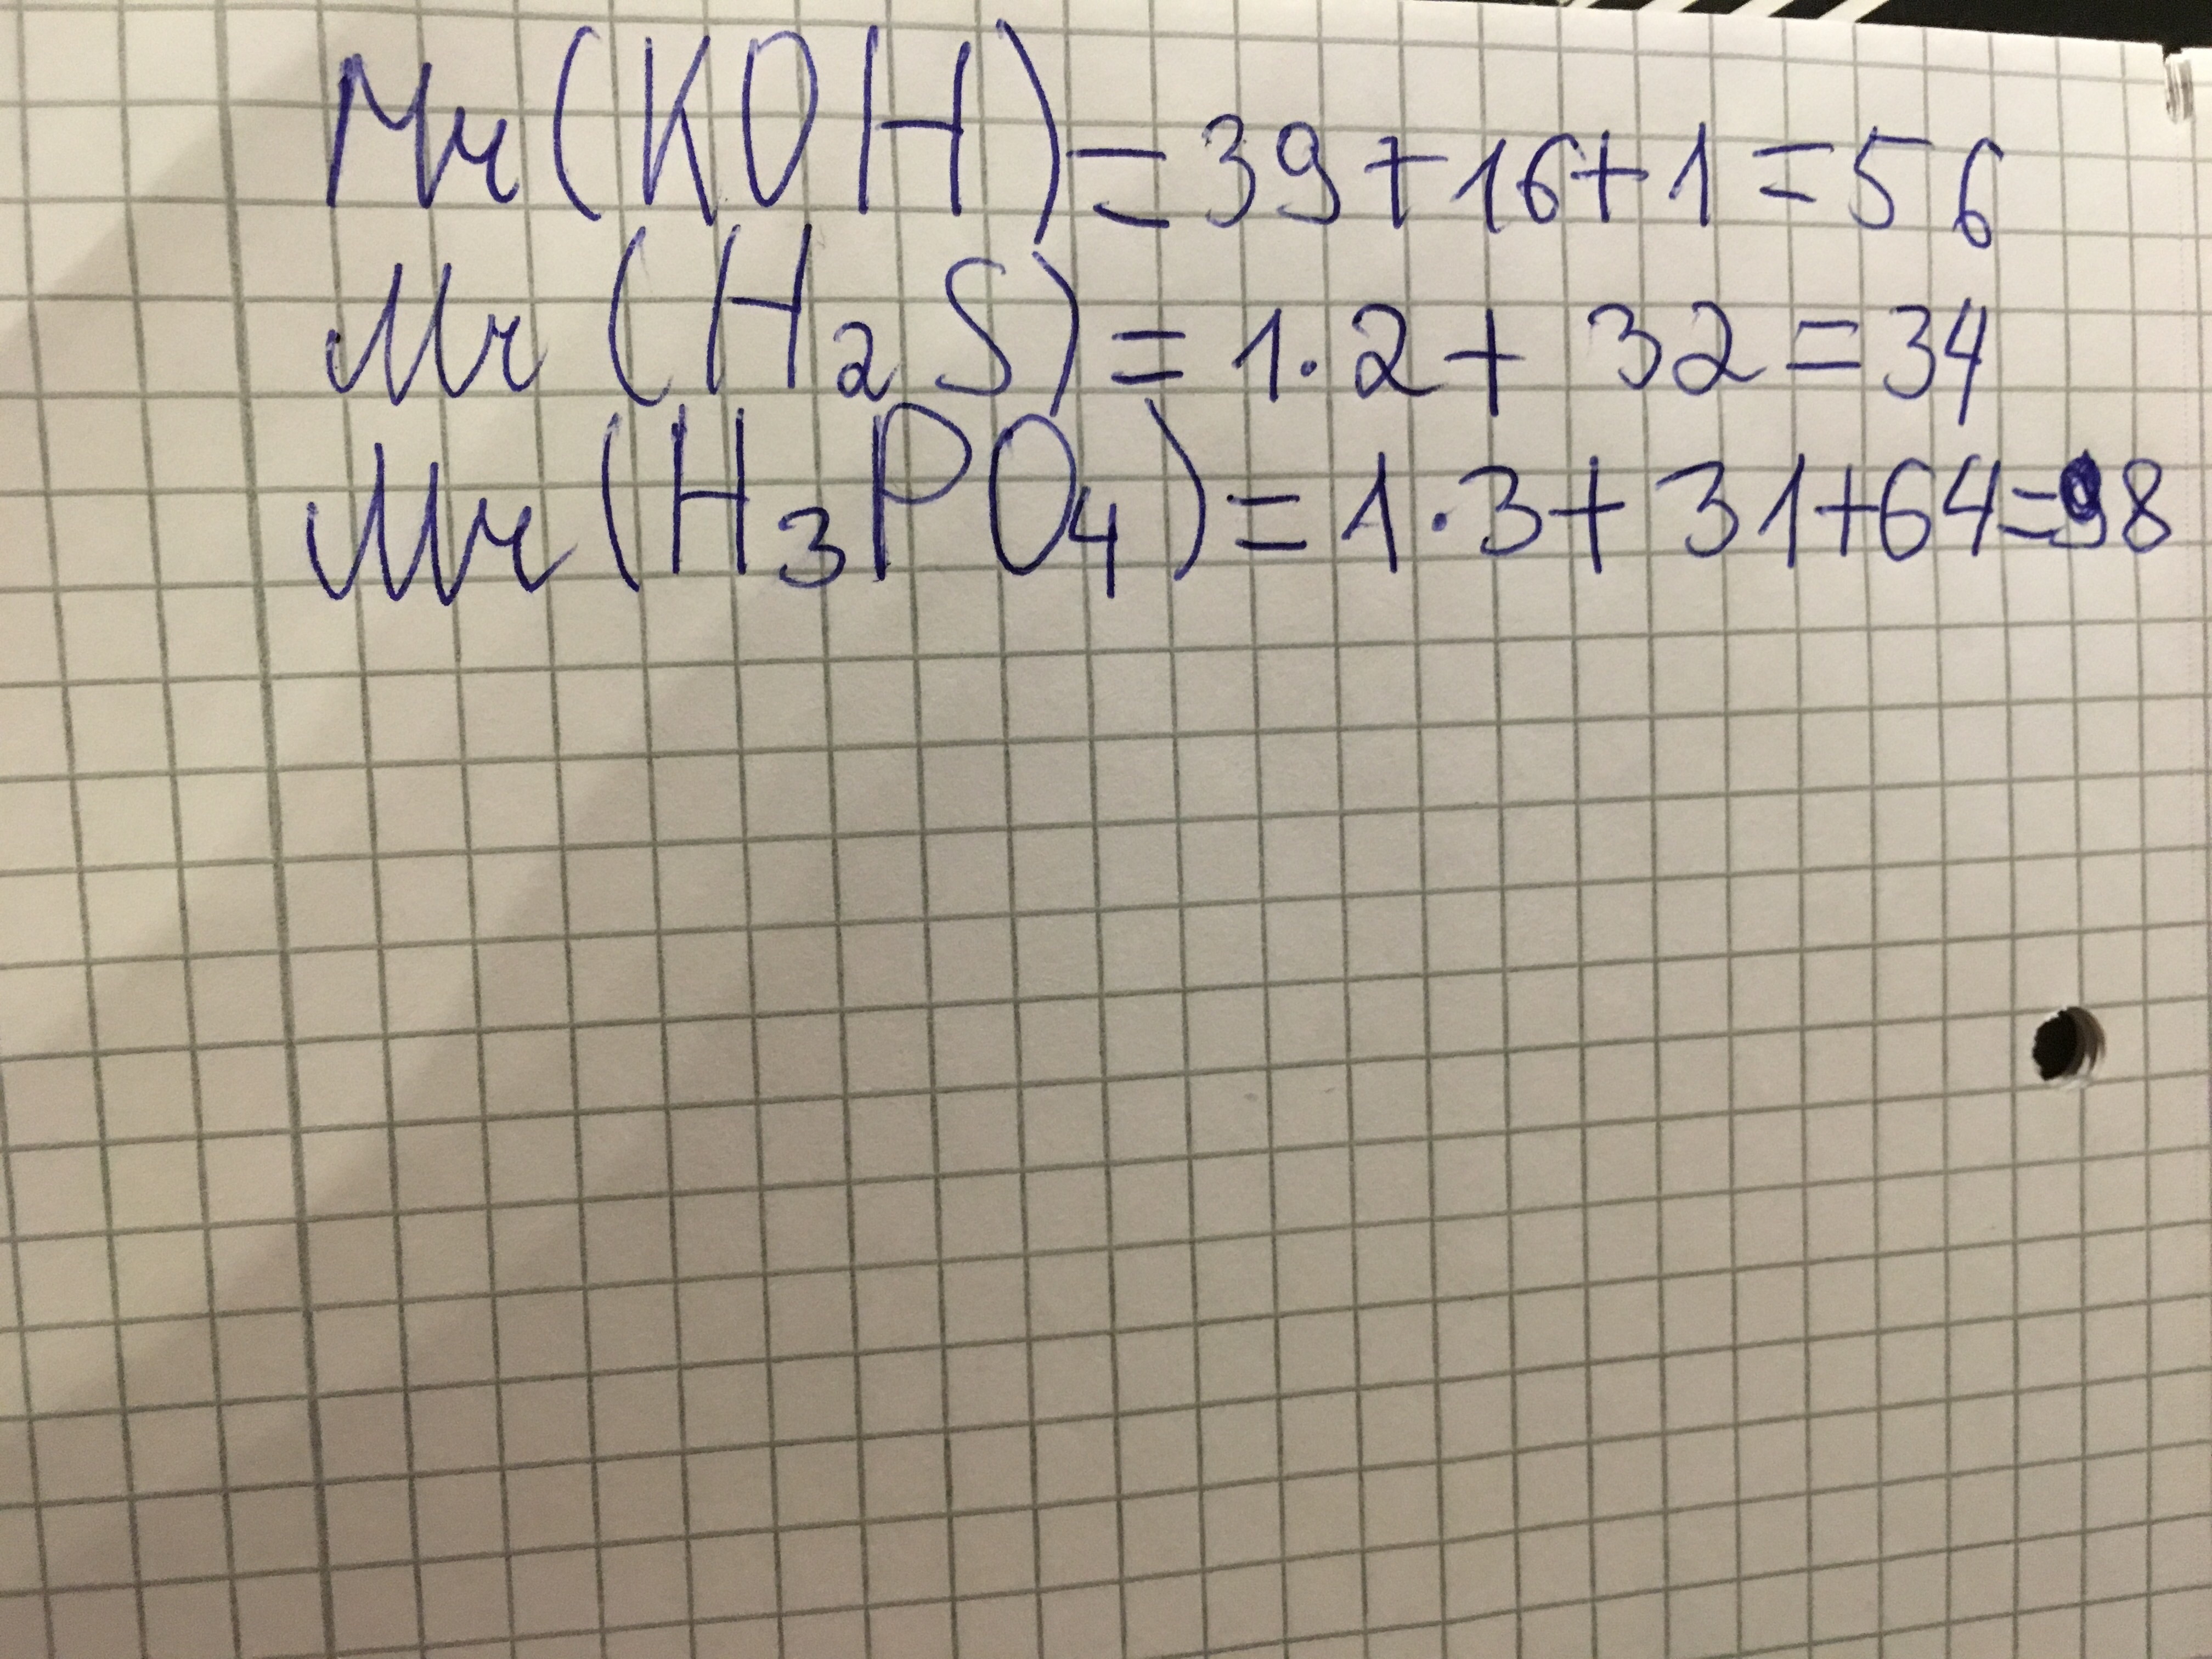 Mr(KOH)=39+16+1=56
Mr(H₂S)=1·2+32=34
Mr(H₃PO₄)=1·3+31+64=98